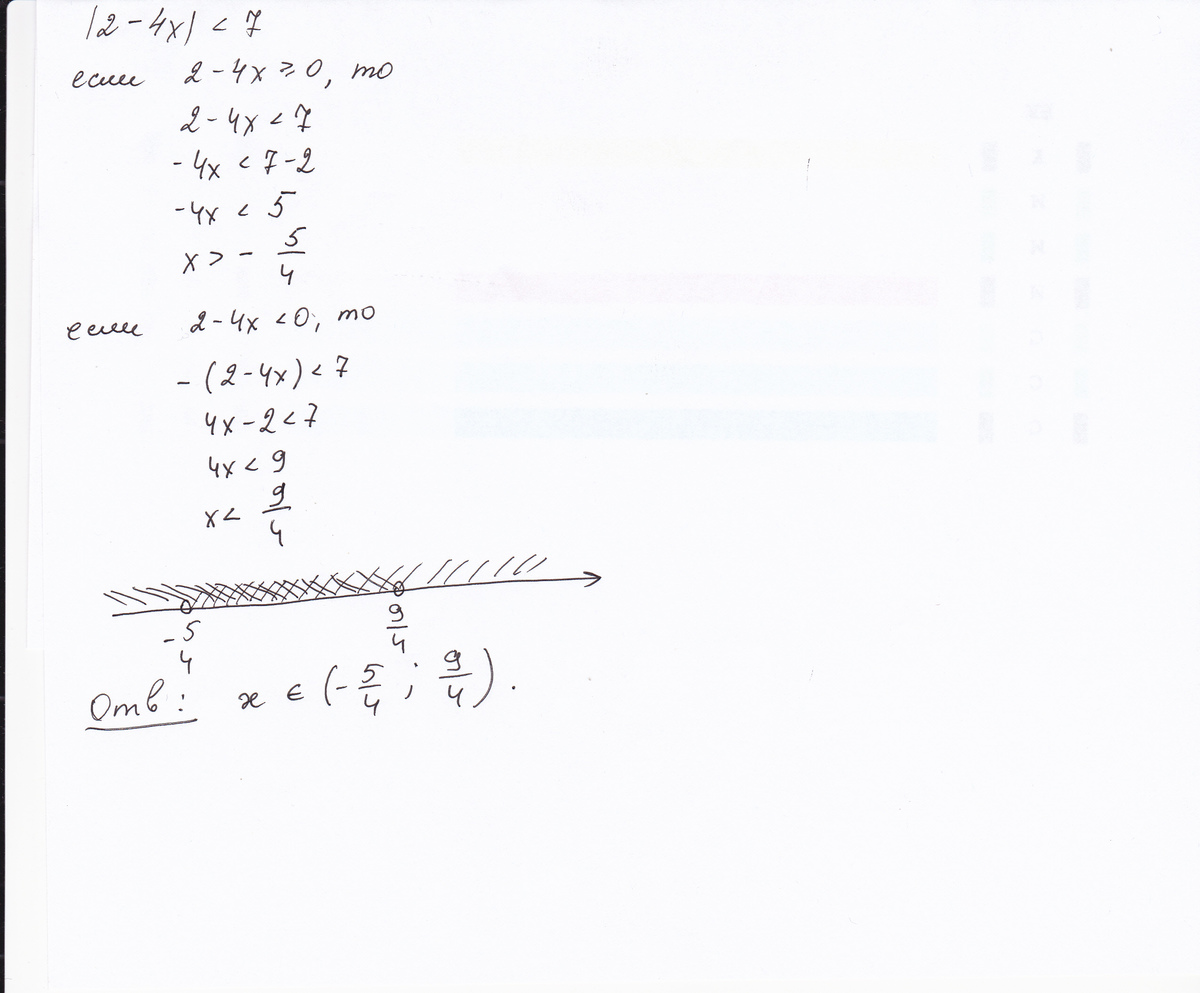 |2-4x| < 7
если 2-4x ≥ 0, то
2-4x < 7
-4x < 7-2
-4x < 5
x > - 5/4
если 2-4x < 0, то
-(2-4x) < 7
4x-2 < 7
4x < 9
x < 9/4
-5/4 9/4
Отв: x ∈ (-5/4; 9/4).